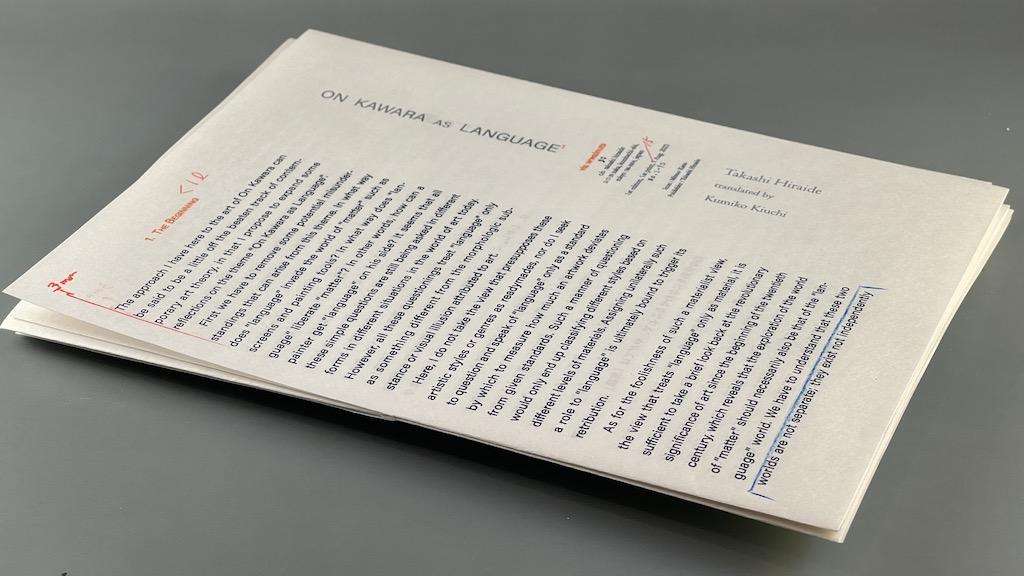 ON KAWARA AS LANGUAGE¹
Takashi Hiraide
translated by
Kumiko Kiuchi
1. THE BEGINNING
The approach I have here to the art of On Kawara can
be said to be a little off the beaten track of contem-
porary art theory, in that I propose to expand some
reflections on the theme "On Kawara as Language".
First we have to remove some potential misunder-
standings that can arise from this theme. In what way
does "language" inside the world of "matter" such as
screens and painting tools? In what way does a "lan-
guage" liberate "matter"? In other words, how can a
painter get "language" on his side? It seems that all
these simple questions are still being asked in different
forms in different situations in the world of art today.
However, all these questionings treat "language" only
as something different from the morphologic sub-
stance or visual illusion attributed to art.
Here, I do not take the view that presupposes these
artistic styles or genres as readymades, nor do I seek
to question and speak of "language" only as a standard
by which to measure how such an artwork deviates
from given standards. Such a manner of questioning
would only end up classifying different styles based on
different levels of materials. Assigning unilaterally such
a role to "language" is ultimately bound to trigger its
retribution.
As for the foolishness of such a materialist view,
the view that treats "language" only as material, it is
sufficient to take a brief look back at the revolutionary
significance of art since the beginning of the twentieth
century, which reveals that the aspiration of the world
of "matter" should necessarily also be that of the "lan-
guage" world. We have to understand that these two
worlds are not separate; they exist not independently